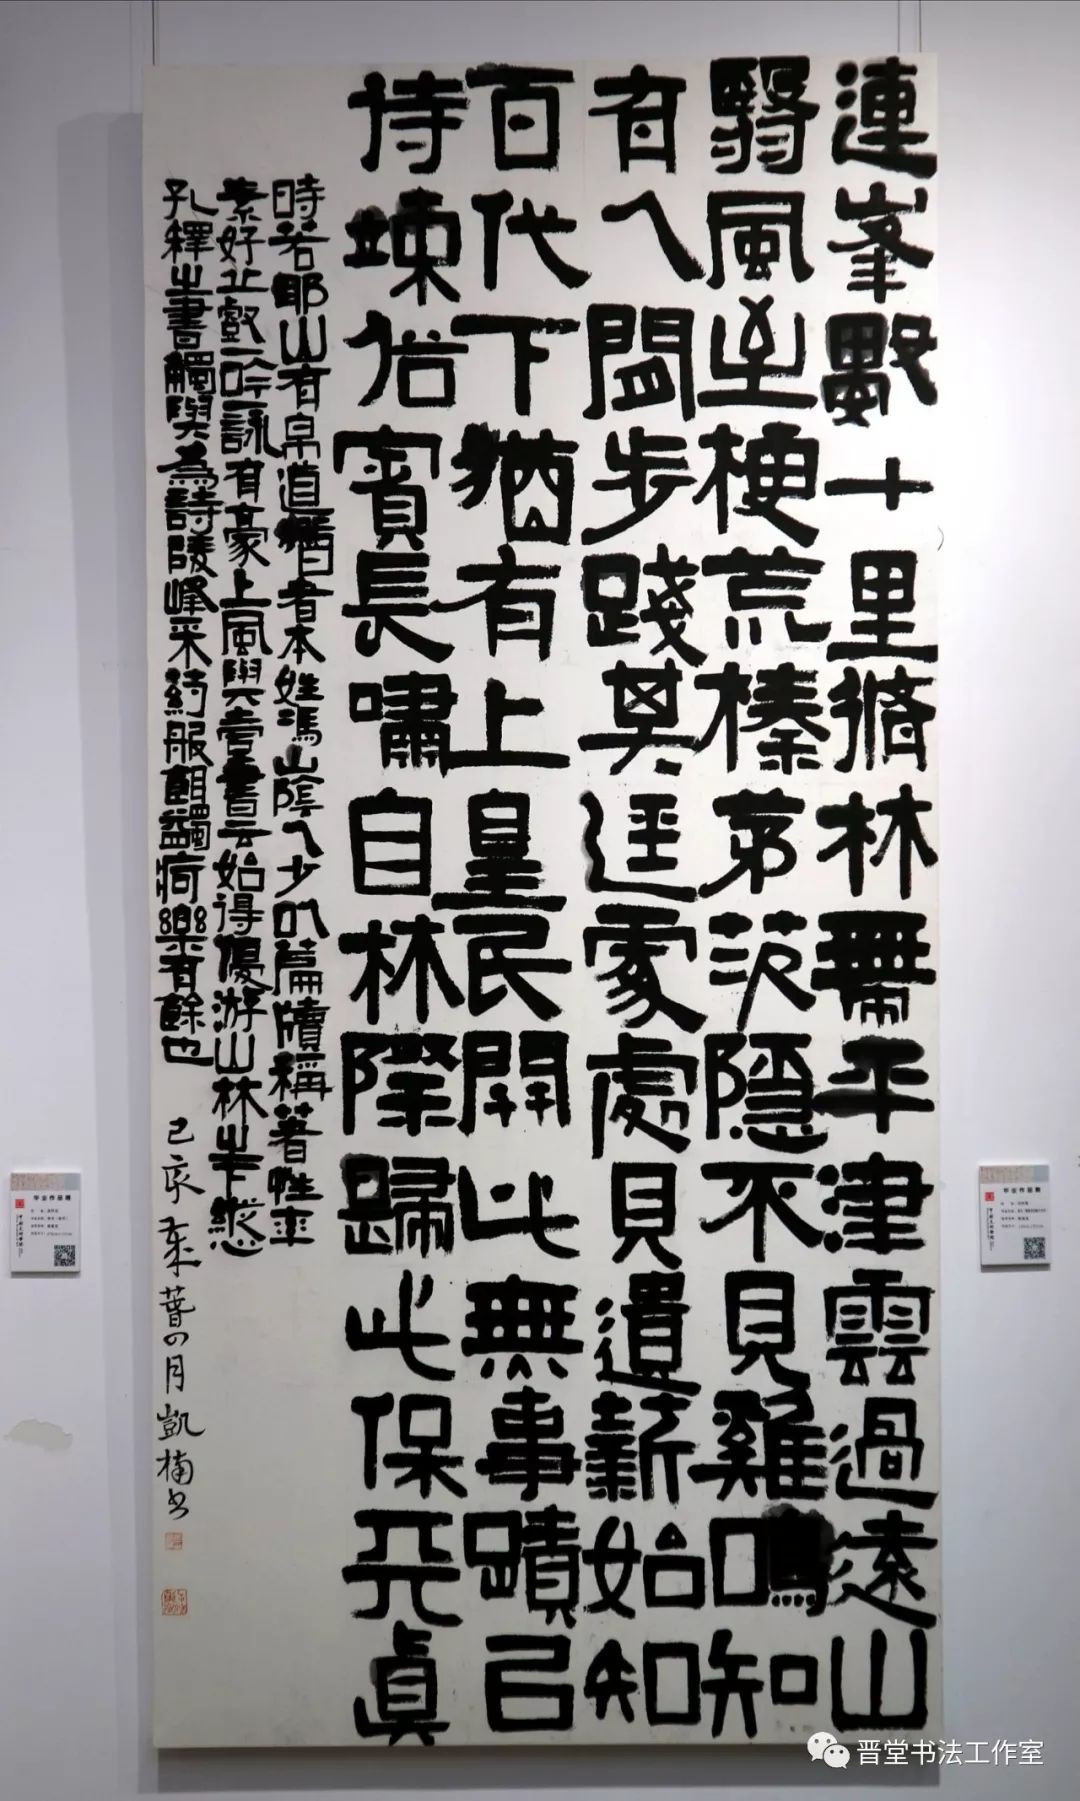 連峯數十里脩林帶平津雲過遠山
翳風至梗荒榛茅茨隱不見雞鳴知
有人閒步踐其逕處處見遺薪始知
百代下猶有上皇民開此無事蹟以
待竦俗賓長嘯自林際歸此保天真
時若耶山有帛道猷者本姓馮山陰人少以篇牘稱著性率
素好丘壑一吟一詠有豪上風與道壹書云始得優游山林之下縱心
孔釋之書觸興為詩陵峰采藥服餌蠲痾樂有餘也 己亥 月凱楠書
毕业作品展
毕业作品展
晋堂书法工作室